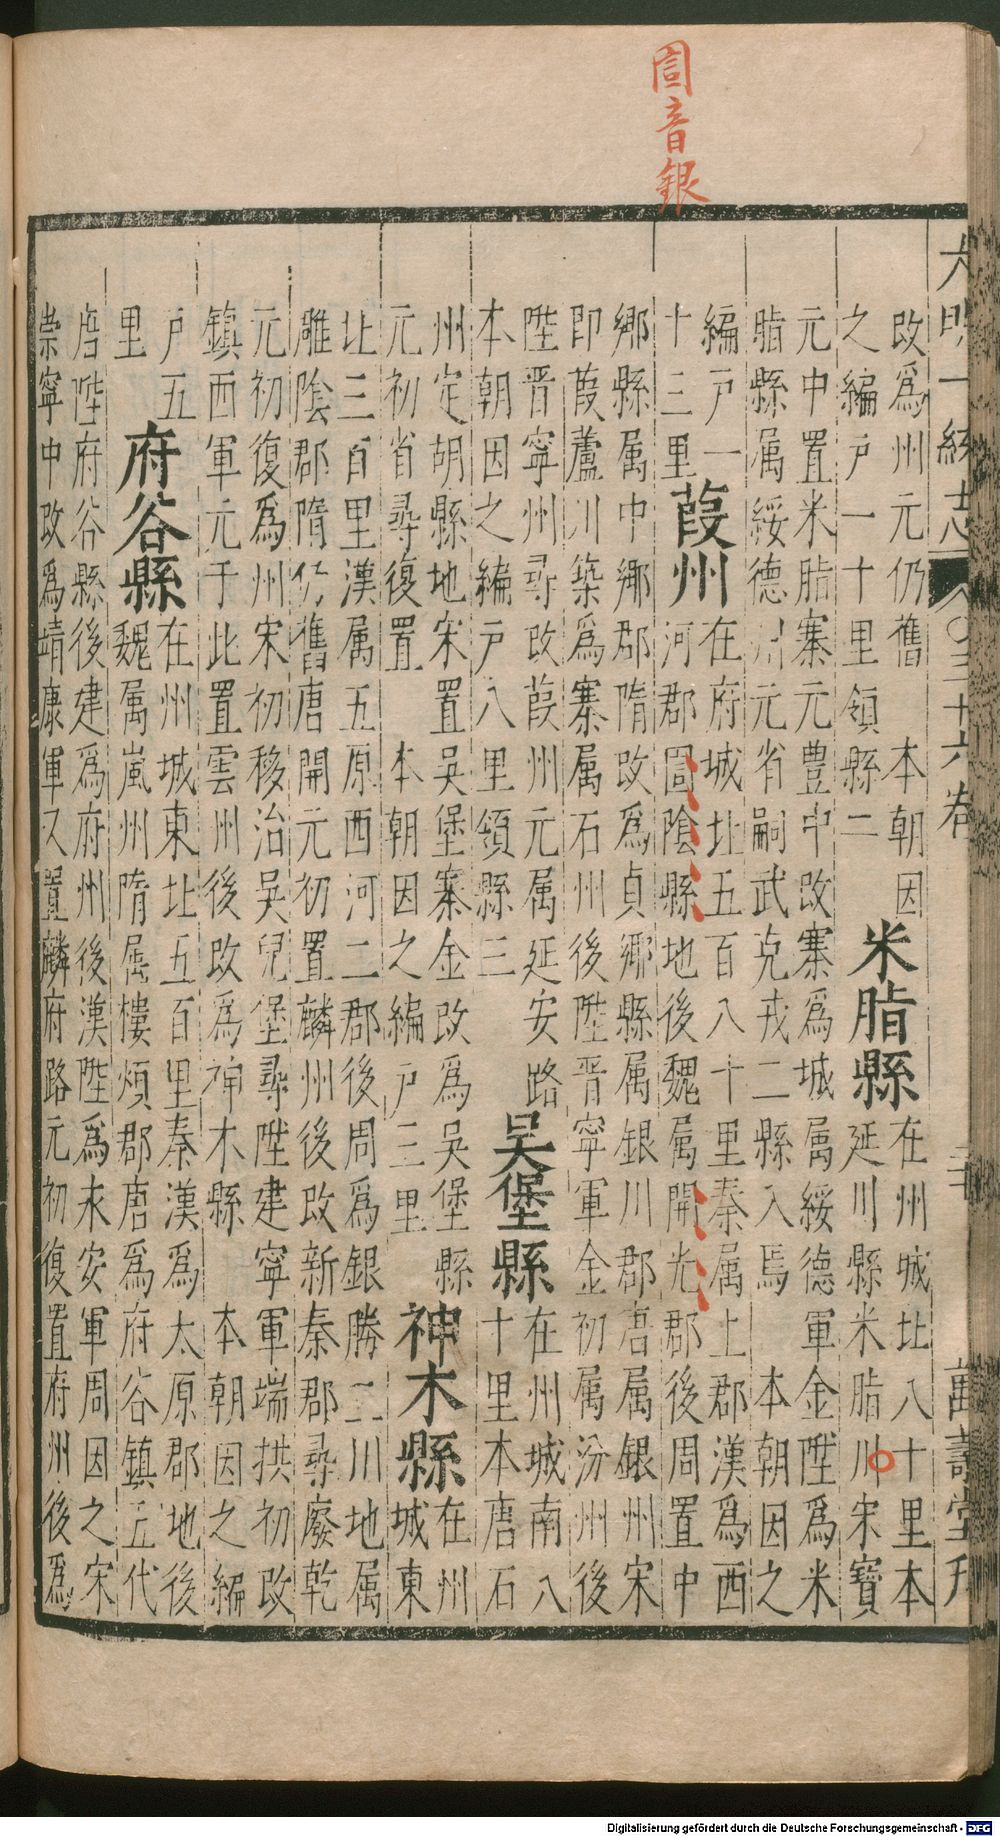 圁音銀
大明一統志 卷三十六 二十 萬壽堂刊
改爲州元仍舊 本朝因
之編戶一十里領縣二
米脂縣
在州城北八十里本
延川縣米脂川宋寶
元中置米脂寨元豐中改寨爲城属綏德軍金陞爲米
脂縣属綏德州元省嗣武克戎二縣入焉 本朝因之
編戶一
十三里
葭州
在府城北五百八十里秦属上郡漢爲西
河郡圁陰縣地後魏属開光郡後周置中
鄉縣属中鄉郡隋改爲貞鄉縣属銀川郡唐属銀州宋
即葭蘆川築爲寨属石州後陞晉寧軍金初属汾州後
陞晉寧州尋改葭州元属延安路
本朝因之編戶八里領縣三
吳堡縣
在州城南八
十里本唐石
州定胡縣地宋置吳堡寨金改爲吳堡縣
元初省尋復置 本朝因之編戶三里
神木縣
在州
城東
北三百里漢属五原西河二郡後周爲銀勝二川地属
雕陰郡隋仍舊唐開元初置麟州後改新秦郡尋廢乾
元初復爲州宋初移治吳兒堡尋陞建寧軍端拱初改
鎮西軍元于此置雲州後改爲神木縣 本朝因之編
戶五
里
府谷縣
在州城東北五百里秦漢爲太原郡地後
魏属嵐州隋属樓煩郡唐爲府谷鎮五代
唐陞府谷縣後建爲府州後漢陞爲永安軍周因之宋
崇寧中改爲靖康軍又置麟府路元初復置府州後爲
Digitalisierung gefördert durch die Deutsche Forschungsgemeinschaft - DFG